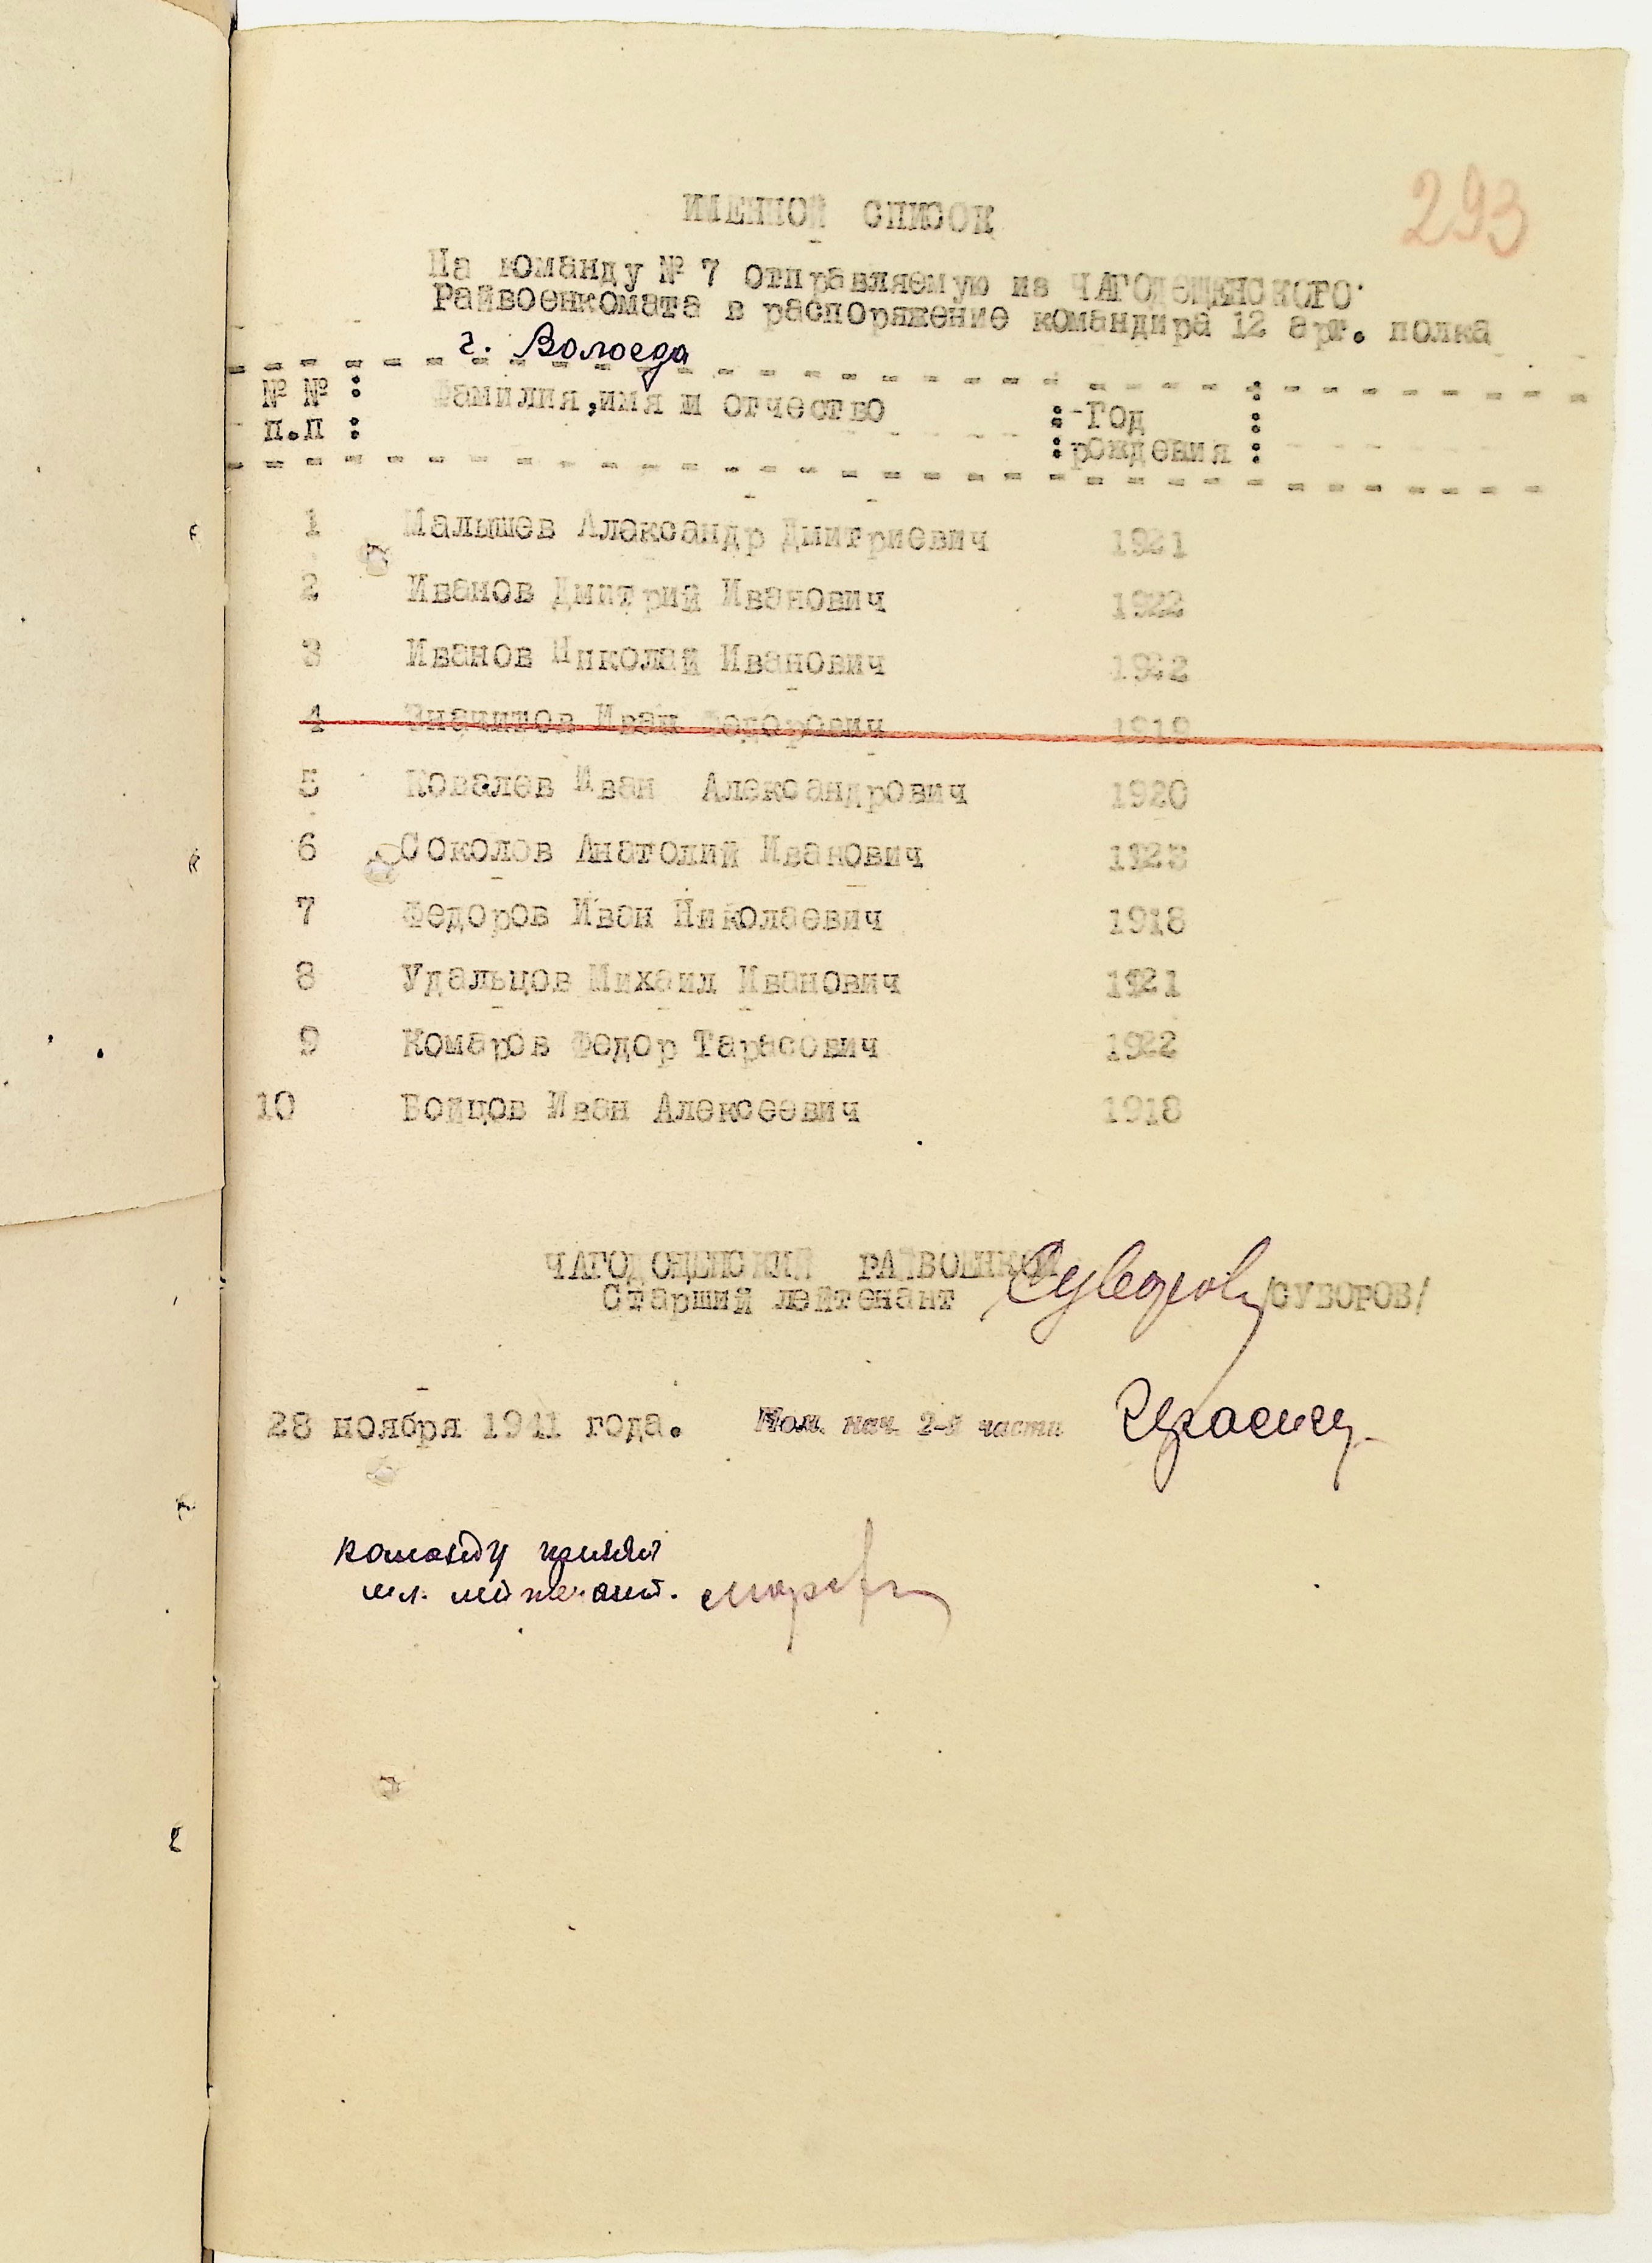 293
ИМЕННОЙ СПИСОК
На команду № 7 отправляемую из ЧАГОДОЩЕНСКОГО
Райвоенкомата в распоряжение командира 12 арт. полка
г. Вологда
№ № : Фамилия, имя и отчество : Год :
п.п : : рождения :
1 Малышев Александр Дмитриевич 1921
2 Иванов Дмитрий Иванович 1922
3 Иванов Николай Иванович 1922
4 Иван Федорович 1919
5 Ковалев Иван Александрович 1920
6 Соколов Анатолий Иванович 1923
7 Федоров Иван Николаевич 1918
8 Удальцов Михаил Иванович 1921
9 Комаров Федор Тарасович 1922
10 Бойцов Иван Алексеевич 1918
ЧАГОДОЩЕНСКИЙ РАЙВОЕНКОМ
Старший лейтенант Суворов /СУВОРОВ/
28 ноября 1941 года. Пом. нач. 2-й части
команду принял
мл. лейтенант.